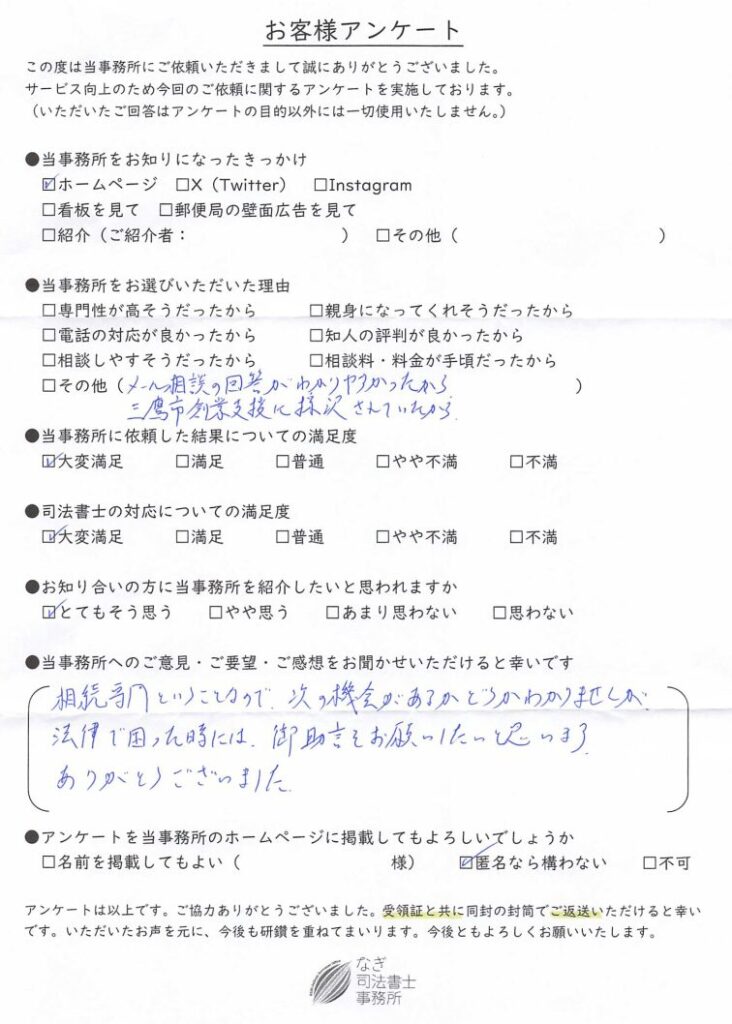 お客様アンケート
この度は当事務所にご依頼いただきまして誠にありがとうございました。
サービス向上のため今回のご依頼に関するアンケートを実施しております。
（いただいたご回答はアンケートの目的以外には一切使用いたしません。）
●当事務所をお知りになったきっかけ
☑ホームページ □X（Twitter） □Instagram
□看板を見て □郵便局の壁面広告を見て
□紹介（ご紹介者： ） □その他（ ）
●当事務所をお選びいただいた理由
□専門性が高そうだったから □親身になってくれそうだったから
□電話の対応が良かったから □知人の評判が良かったから
□相談しやすそうだったから □相談料・料金が手頃だったから
□その他（メール相談の回答がわかりやすかったから ）
三鷹市創業支援に採択されていたから
●当事務所に依頼した結果についての満足度
☑大変満足 □満足 □普通 □やや不満 □不満
●司法書士の対応についての満足度
☑大変満足 □満足 □普通 □やや不満 □不満
●お知り合いの方に当事務所を紹介したいと思われますか
☑とてもそう思う □やや思う □あまり思わない □思わない
●当事務所へのご意見・ご要望・ご感想をお聞かせいただけると幸いです
相続専門ということなので、次の機会があるかどうかわかりませんが、
法律で困った時には、御助言をお願いしたいと思います。
ありがとうございました。
●アンケートを当事務所のホームページに掲載してもよろしいでしょうか
□名前を掲載してもよい（ 様） ☑匿名なら構わない □不可
アンケートは以上です。ご協力ありがとうございました。受領証と共に同封の封筒でご返送いただけると幸い
です。いただいたお声を元に、今後も研鑽を重ねてまいります。今後ともよろしくお願いいたします。
なぎ
司法書士
事務所